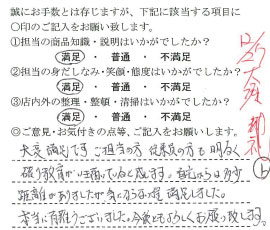 誠にお手数とは存じますが、下記に該当する項目に
〇印のご記入をお願い致します。
①担当の商品知識・説明はいかがでしたか?
満足 ・ 普通 ・ 不満足
②担当の身だしなみ・笑顔・態度はいかがでしたか?
満足 ・ 普通 ・ 不満足
③店内外の整理・整頓・清掃はいかがでしたか?
満足 ・ 普通 ・ 不満足
◎ご意見・お気付きの点等、ご記入をお願いします。
大変満足です ご担当の方 従業員の方も 明るく
教育が 行届いていると感じます。
距離がありましたが 満足しました。
本当に有難うございました。今後ともよろしくお願い致します。